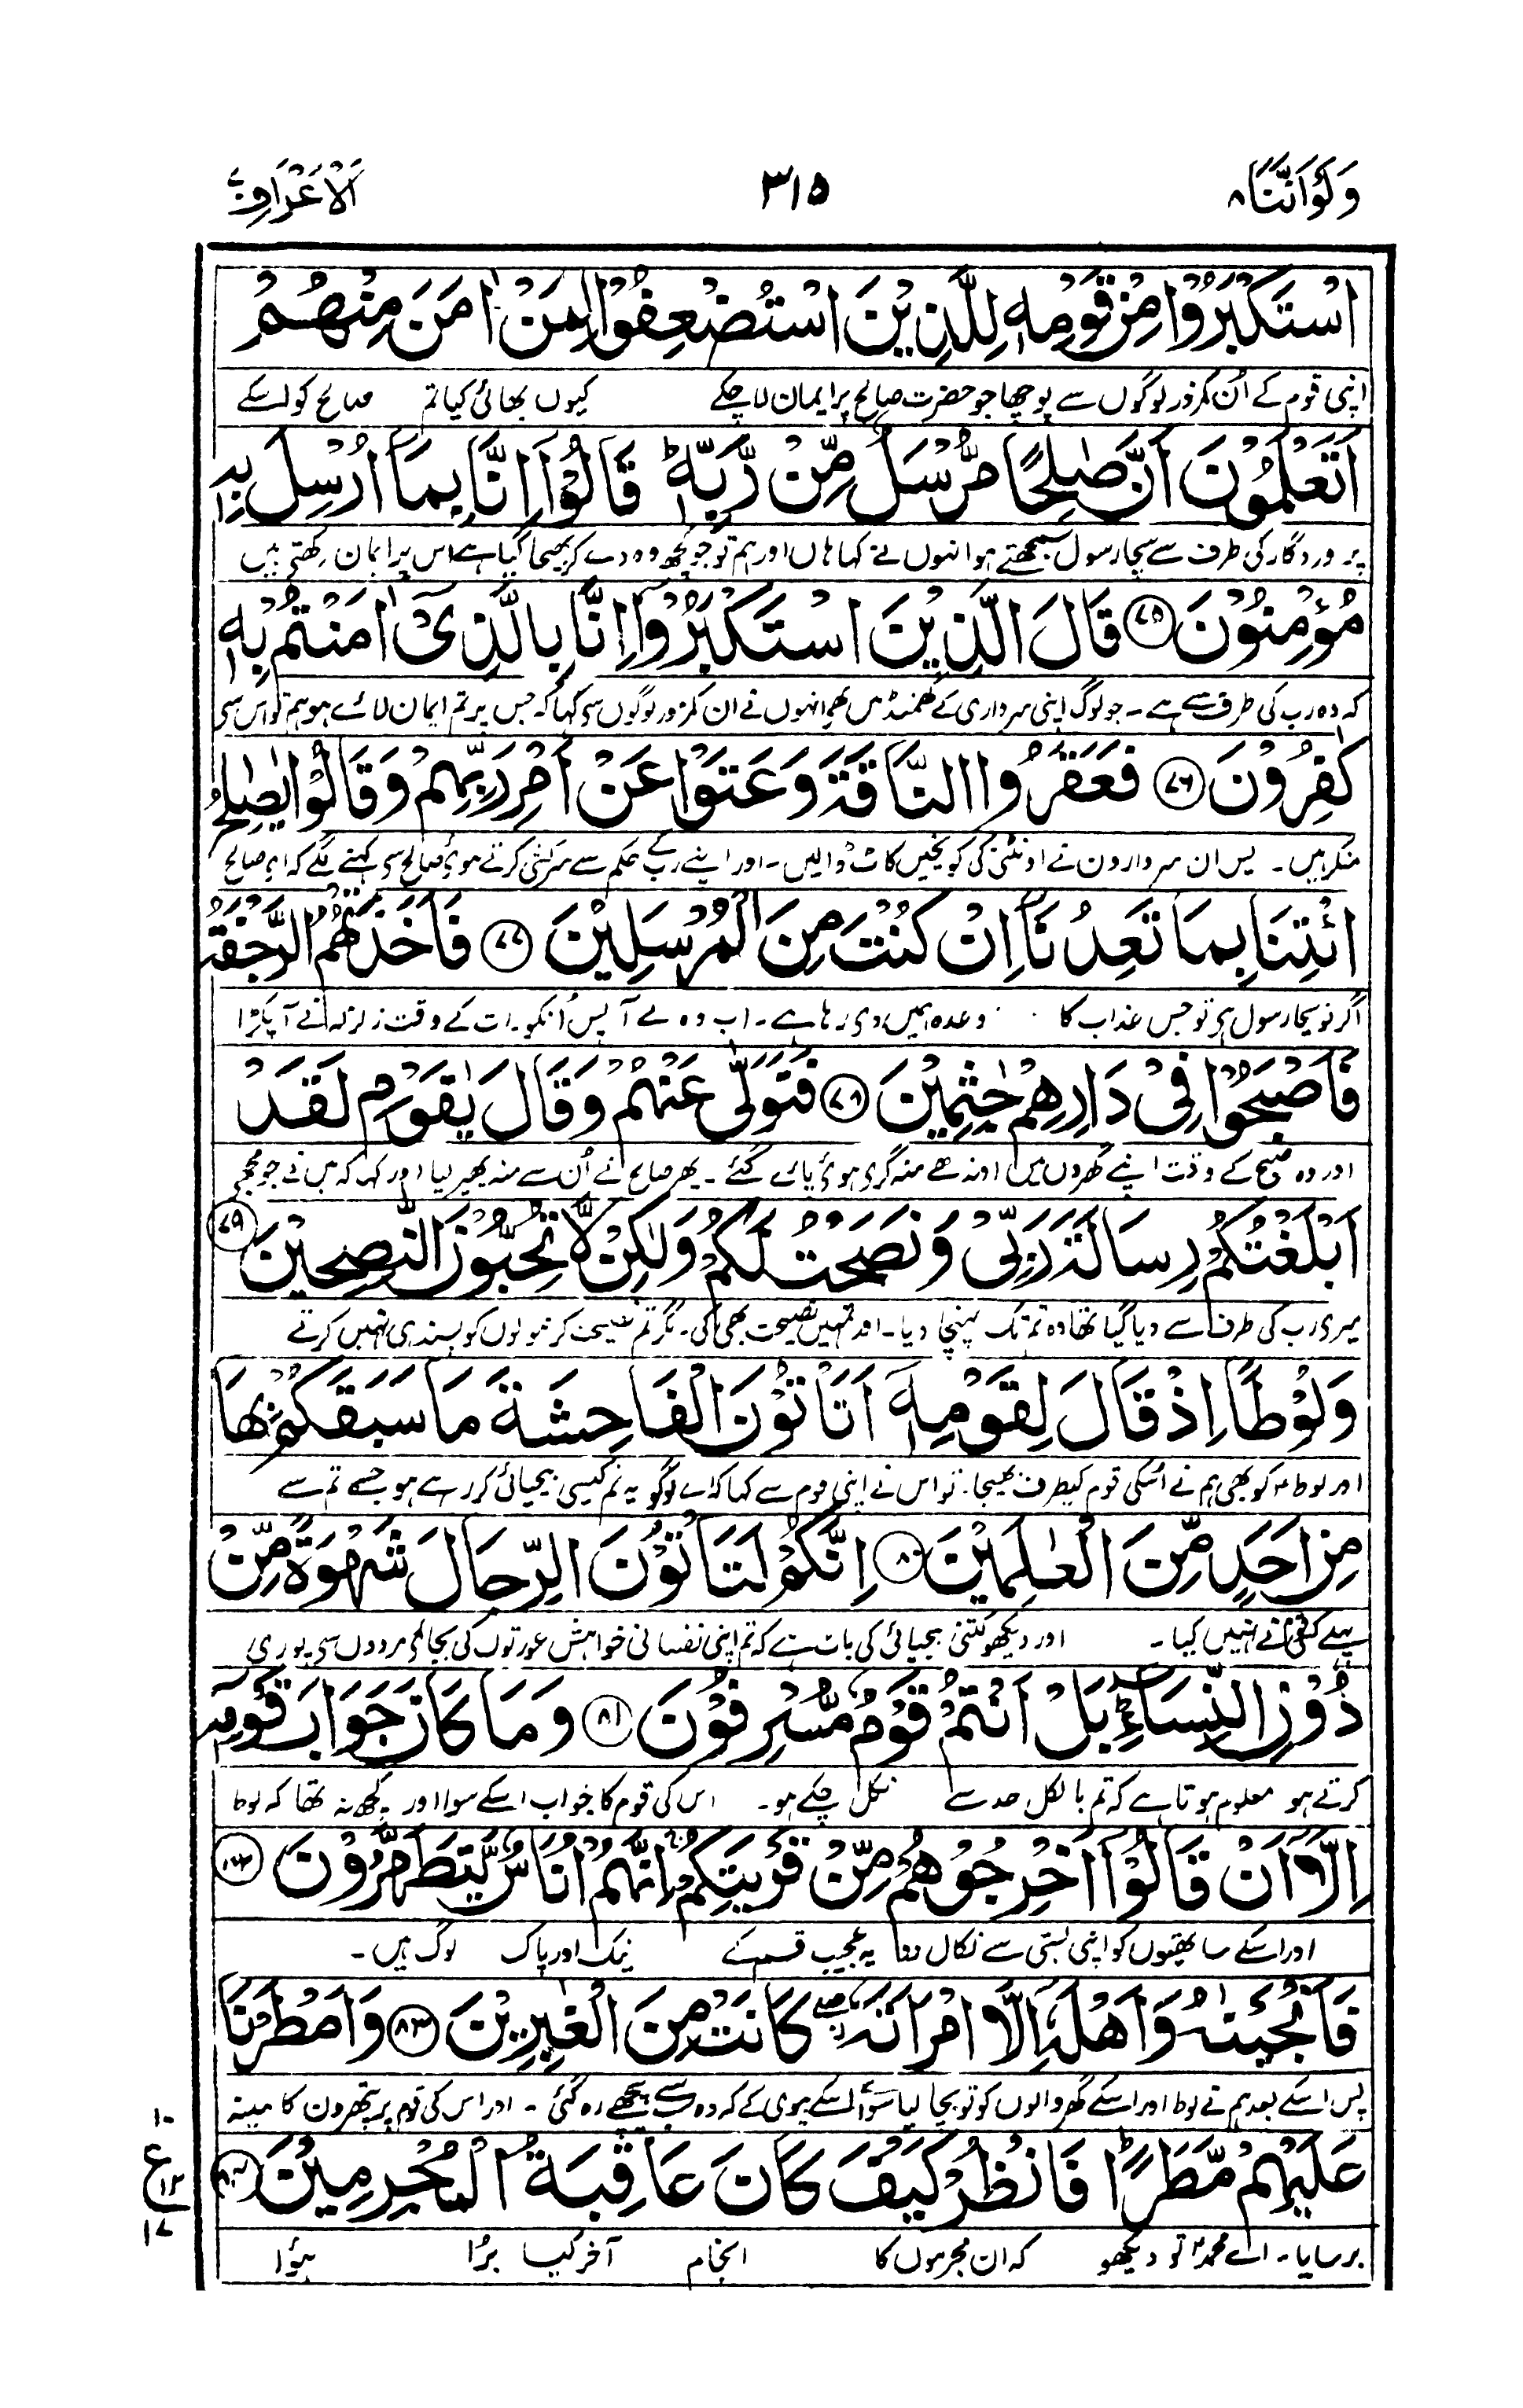 وَلَوْاَنَّنَا ٨
٣١٥
اَلْاَعْرَاف ٧
اسْتَكْبَرُوْا مِنْ قَوْمِهٖ لِلَّذِيْنَ اسْتُضْعِفُوْا لِمَنْ اٰمَنَ مِنْهُمْ
اپنی قوم کے اُن کمزور لوگوں سے پوچھا جو حضرت صالح پر ایمان لاچکے کیوں بھائی کیا تم صالح کو اسکے
اَتَعْلَمُوْنَ اَنَّ صٰلِحًا مُّرْسَلٌ مِّنْ رَّبِّهٖ ؕ قَالُوْۤا اِنَّا بِمَاۤ اُرْسِلَ بِهٖ
پروردگار کی طرف سے سچا رسول سمجھتے ہو انہوں نے کہا ہاں اور ہم تو جو کچھ وہ دے کر بھیجا گیا ہے اس پر ایمان رکھتے ہیں
مُؤْمِنُوْنَ ٧٥ قَالَ الَّذِيْنَ اسْتَكْبَرُوْۤا اِنَّا بِالَّذِىْۤ اٰمَنْتُمْ بِهٖ
کہ وہ رب کی طرف سے ہے ۔ جو لوگ اپنی سرداری کے گھمنڈ میں تھے انہوں نے ان کمزور لوگوں سے کہا کہ جس پر تم ایمان لائے ہو ہم تو اس سے
كٰفِرُوْنَ ٧٦ فَعَقَرُوا النَّاقَةَ وَعَتَوْا عَنْ اَمْرِ رَبِّهِمْ وَقَالُوْا يٰصٰلِحُ
منکر ہیں ۔ پس ان سردارون نے اونٹنی کی کونچیں کاٹ ڈالیں ۔ اور اپنے رب کے حکم سے سرکشی کرتے ہوئے صالح سے کہنے لگے کہ اے صالح
ائْتِنَا بِمَا تَعِدُنَاۤ اِنْ كُنْتَ مِنَ الْمُرْسَلِيْنَ ٧٧ فَاَخَذَتْهُمُ الرَّجْفَةُ
اگر تو سچا رسول ہے تو جس عذاب کا وعدہ ہمیں دے رہا ہے ۔ اب وہ لے آ پس اُنکو رات کے وقت زلزلہ نے آ پکڑا
فَاَصْبَحُوْا فِىْ دَارِهِمْ جٰثِمِيْنَ ٧٨ فَتَوَلّٰى عَنْهُمْ وَقَالَ يٰقَوْمِ لَقَدْ
اور وہ صبح کے وقت اپنے گھروں میں اوندھے منہ گرے ہوئے پائے گئے ۔ پھر صالح نے اُن سے منہ پھیر لیا اور کہا کہ میں نے جو مجھے
اَبْلَغْتُكُمْ رِسَالَةَ رَبِّىْ وَنَصَحْتُ لَكُمْ وَلٰكِنْ لَّا تُحِبُّوْنَ النّٰصِحِيْنَ ٧٩
میرے رب کی طرف سے دیا گیا تھا وہ تم تک پہنچا دیا ۔ اور تمہیں نصیحت بھی کی ۔ مگر تم نصیحت کرنیوالوں کو پسند ہی نہیں کرتے
وَلُوْطًا اِذْ قَالَ لِقَوْمِهٖۤ اَتَاْتُوْنَ الْفَاحِشَةَ مَا سَبَقَكُمْ بِهَا
اور لوط کو بھی ہم نے اُسکی قوم کیطرف بھیجا ۔ تو اس نے اپنی قوم سے کہا کہ اے لوگو یہ تم کیسی بیحیائی کر رہے ہو جسے تم سے
مِنْ اَحَدٍ مِّنَ الْعٰلَمِيْنَ ٨٠ اِنَّكُمْ لَتَاْتُوْنَ الرِّجَالَ شَهْوَةً مِّنْ
پہلے کسی نے نہیں کیا ۔ اور دیکھو کتنی بیحیائی کی بات ہے کہ تم اپنی نفسانی خواہش عورتوں کی بجائے مردوں سے پوری
دُوْنِ النِّسَآءِ ؕ بَلْ اَنْتُمْ قَوْمٌ مُّسْرِفُوْنَ ٨١ وَمَا كَانَ جَوَابَ قَوْمِهٖۤ
کرتے ہو معلوم ہوتا ہے کہ تم بالکل حد سے نکل چکے ہو ۔ اس کی قوم کا جواب اسکے سوا اور کچھ نہ تھا کہ لوط
اِلَّاۤ اَنْ قَالُوْۤا اَخْرِجُوْهُمْ مِّنْ قَرْيَتِكُمْ ۚ اِنَّهُمْ اُنَاسٌ يَّتَطَهَّرُوْنَ ٨٢
اور اسکے ساتھیوں کو اپنی بستی سے نکال دو یہ عجیب قسم کے نیک اور پاک لوگ ہیں ۔
فَاَنْجَيْنٰهُ وَاَهْلَهٗۤ اِلَّا امْرَاَتَهٗ ۖ كَانَتْ مِنَ الْغٰبِرِيْنَ ٨٣ وَاَمْطَرْنَا
پس اسکے بعد ہم نے لوط اور اسکے گھر والوں کو تو بچا لیا سوائے اسکے بیوی کے کہ وہ سب سے پیچھے رہ گئی ۔ اور اس کی قوم پر پتھرون کا مینہ
عَلَيْهِمْ مَّطَرًا ؕ فَانْظُرْ كَيْفَ كَانَ عَاقِبَةُ الْمُجْرِمِيْنَ ٨٤
١٠
ع
١٢
١٧
برسایا ۔ اے محمد تو دیکھو کہ ان مجرموں کا انجام آخر کیسا بُرا ہوُا